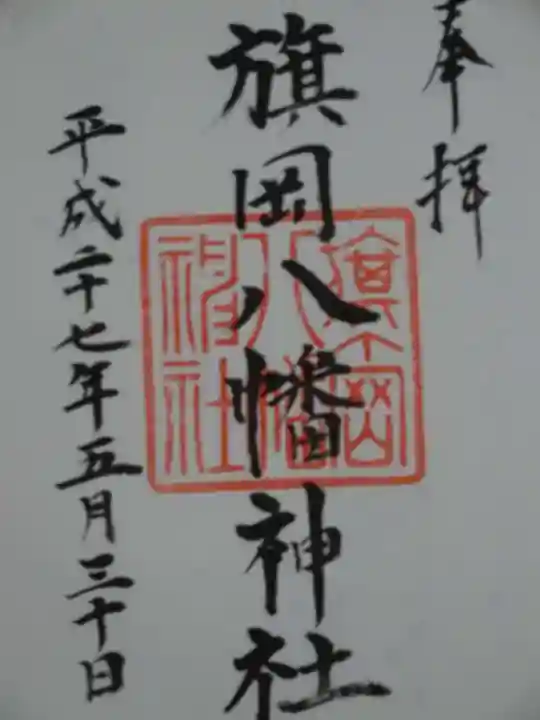 奉拝
旗岡八幡神社
旗岡八幡神社
平成二十七年五月三十日